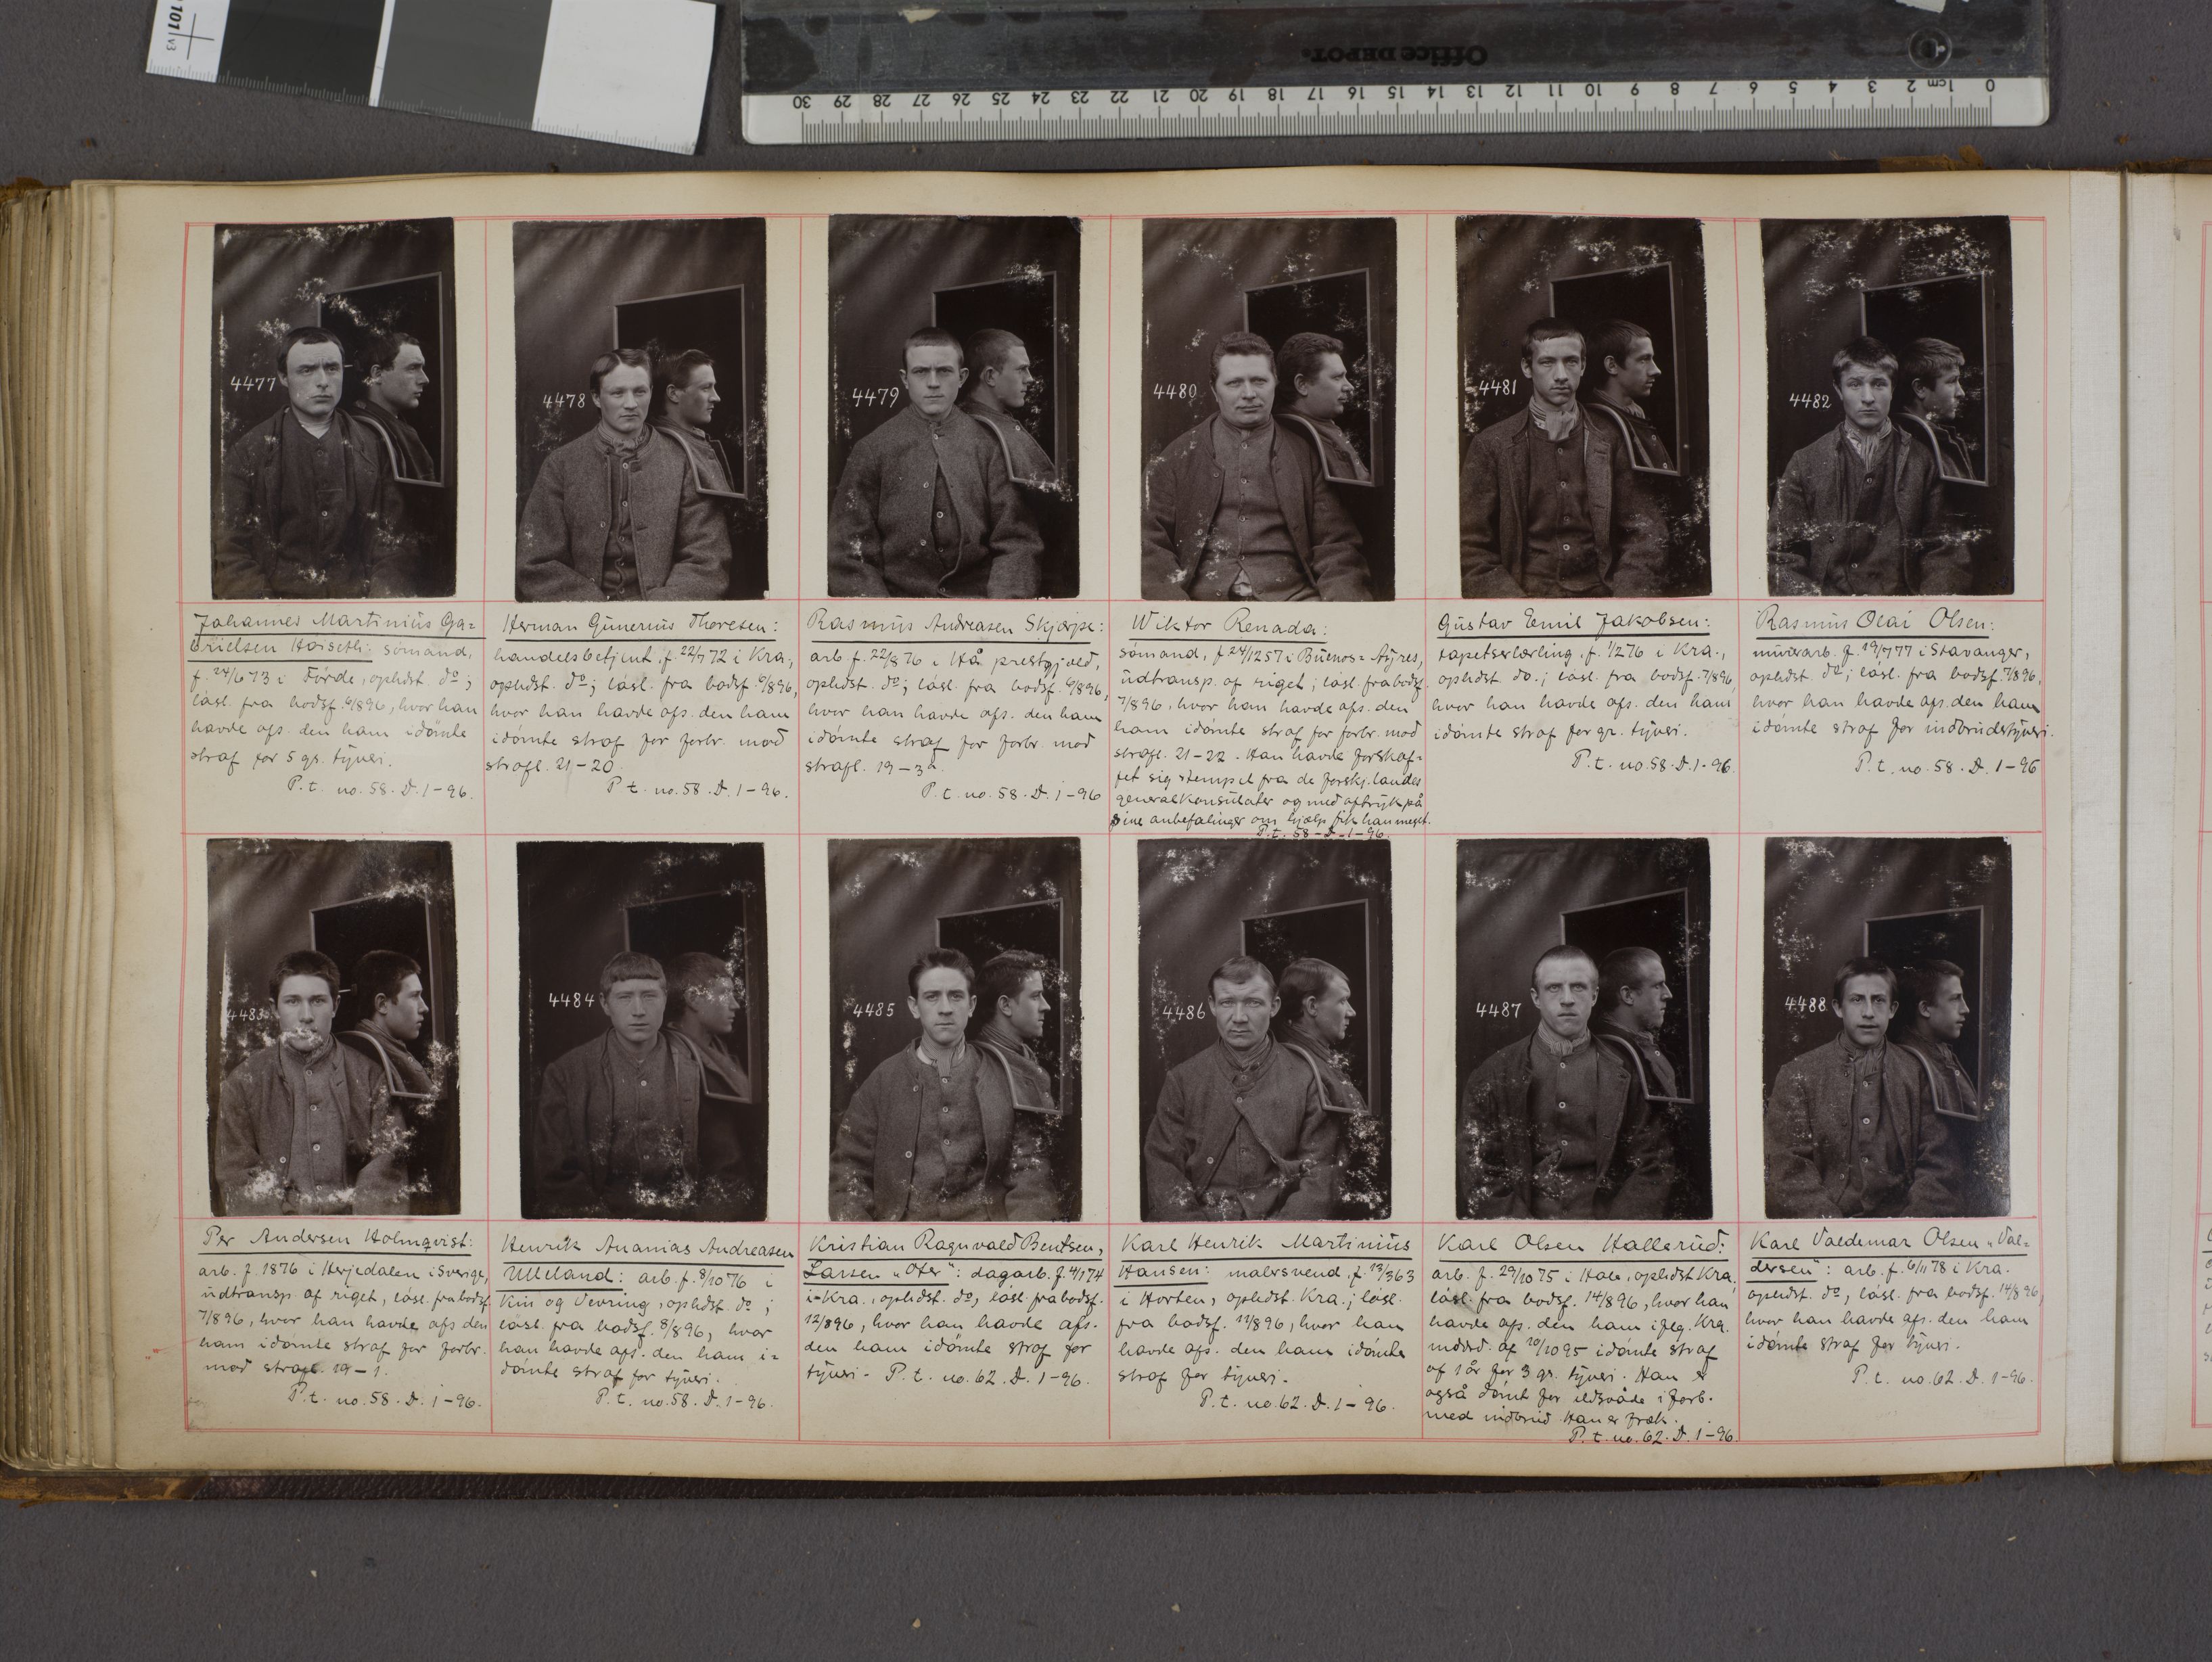 101 v3
Office DEPOT.
0 1cm 2 3 4 5 6 7 8 9 10 11 12 13 14 15 16 17 18 19 20 21 22 23 24 25 26 27 28 29 30
4477
4478
4479
4480
4481
4482
Johannes Martinius Ga=
brielsen Hoiseth: sömand,
f. 24/6 73 i Förde, ophdst. do;
lösl. fra bodsf. 6/8 96, hvor han
havde afs. den ham idömte
straf for 5 gr. tyveri.
P. t. no. 58. D. 1-96.
Herman Gunerius Thoresen:
handelsbetjent f. 22/7 72 i Kra.,
ophdst. do; lösl. fra bodsf. 6/8 96,
hvor han havde afs. den ham
idömte straf for forbr. mod
strafl. 21-20.
P. t. no. 58. D. 1-96.
Rasmus Andreasen Skjærpe:
arb. f. 22/8 76 i Hå prestgjæld,
ophdst. do; lösl. fra bodsf. 6/8 96,
hvor han havde afs. den ham
idömte straf for forbr. mod
strafl. 19-3
P. t. no. 58. D. 1-96
Wiktor Renada:
sömand, f. 24/12 57 i Buenos=Ayres,
udtransp. af riget; lösl. fra bodsf.
7/8 96, hvor han havde afs. den
ham idömte straf for forbr. mod
strafl. 21-22. Han havde forskaf=
fet sig stempel fra de forskj. landes
generalkonsulater og med aftryk på
sine anbefalinger om hjælp fik han meget.
P. t. 58-D-1-96.
Gustav Emil Jakobsen:
tapetserlærling, f. 1/2 76 i Kra.,
ophdst. do.; lösl. fra bodsf. 7/8 96,
hvor han havde afs. den ham
idömte straf for gr. tyveri.
P. t. no. 58. D. 1-96.
Rasmus Olai Olsen:
murerarb. f. 19/7 77 i Stavanger,
ophdst. do; lösl. fra bodsf. 7/8 96,
hvor han havde afs. den ham
idömte straf for indbrudstyveri.
P. t. no. 58. D. 1-96
4483
4484
4485
4486
4487
4488
Per Andersen Holmqvist:
arb. f. 1876 i Herjedalen i Sverige,
udtransp. af riget, lösl. fra bodsf.
7/8 96, hvor han havde afs den
ham idömte straf for forbr.
mod strafl. 19-1.
P. t. no. 58. D. 1-96.
Henrik Ananias Andreasen
Ulleland: arb. f. 8/10 76 i
Kin og Vevring, ophdst. do;
lösl. fra bodsf. 8/8 96, hvor
han havde afs. den ham i=
dömte straf for tyveri.
P. t. no. 58. D. 1-96.
Kristian Ragnvald Bentsen,
Larsen "Oter": dagarb. f. 4/1 74
i Kra., ophdst. do, lösl. fra bodsf.
12/8 96, hvor han havde afs.
den ham idömte straf for
tyveri. P. t. no. 62. D. 1-96.
Karl Henrik Martinius
Hansen: malersvend, f. 13/3 63
i Horten, ophdst. Kra.; lösl.
fra bodsf. 11/8 96, hvor han
havde afs. den ham idömte
straf for tyveri.
P. t. no. 62. D. 1-96.
Karl Olsen Hallerud:
arb. f. 29/10 75 i Hole, ophdst Kra,
lösl. fra bodsf. 14/8 96, hvor han
havde afs. den ham iflg. Kra.
mdrsd. af 10/10 95 idömte straf
af 1 år for 3 gr. tyveri. Han er
også dömt for ildsvåde i forb.
med indbrud. Han er fræk.
P. t. no. 62. D. 1-96.
Karl Valdemar Olsen "Val=
dersen": arb. f. 6/11 78 i Kra.
ophdst. do, lösl. fra bodsf. 14/8 96,
hvor han havde afs. den ham
idömte straf for tyveri.
P. t. no. 62. D. 1-96.